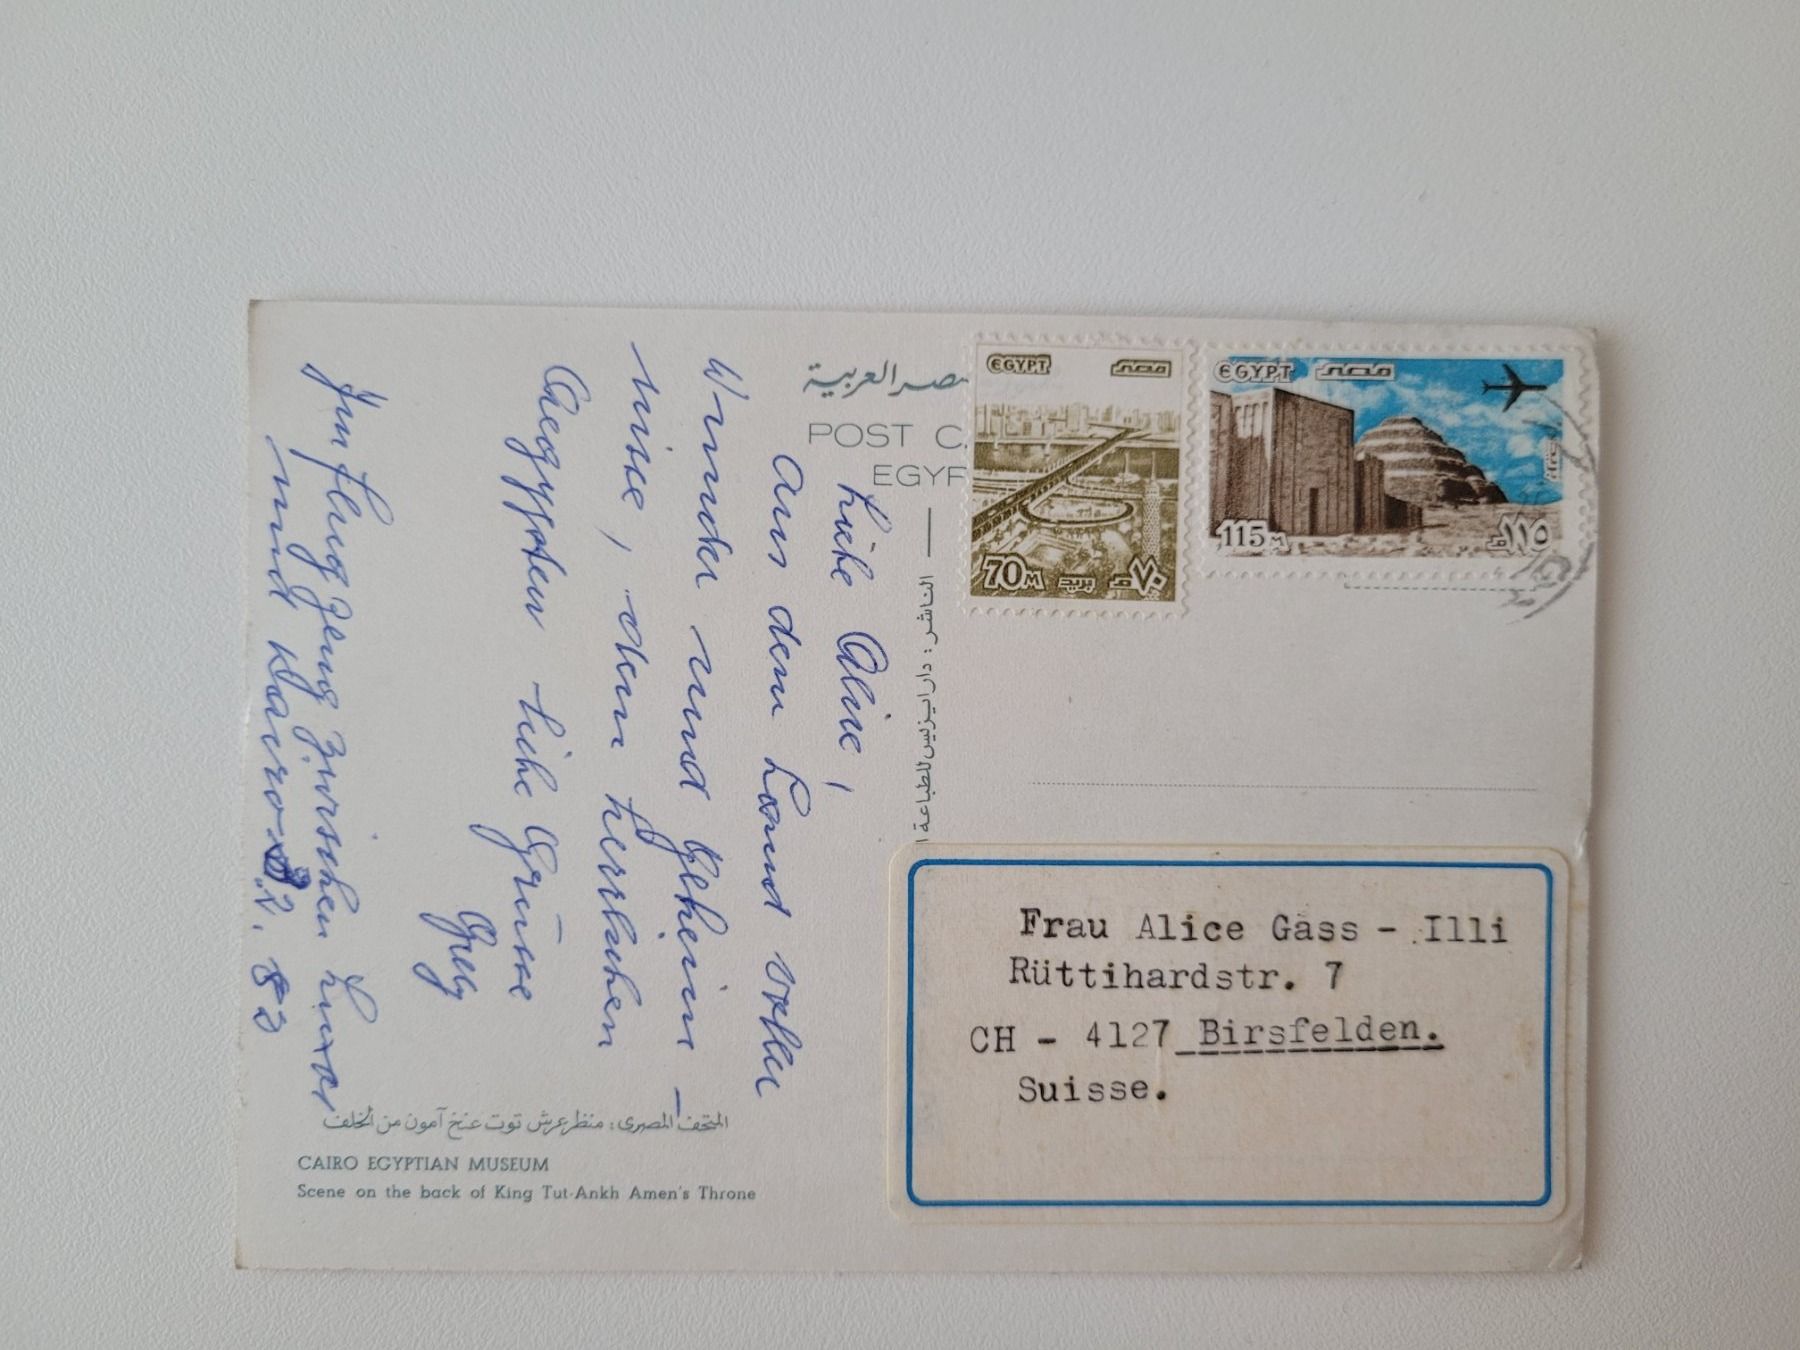 Liebe Alice,
Aus dem Land voller
Wunder und Geheim-
nisse, dem herrlichen
Aegypten liebe Grüsse
Grety
Im Flugzeug zwischen Luxor
und Kairo 2. 83
مصر العربية
POST C
EGYP
الناشر : دار ايزيس للطباعة
EGYPT مصر
70M بريد ٧٠م
EGYPT مصر
115M ١١٥م
Frau Alice Gass - Illi
Rüttihardstr. 7
CH - 4127 Birsfelden.
Suisse.
المتحف المصرى : منظر عرش توت عنخ آمون من الخلف
CAIRO EGYPTIAN MUSEUM
Scene on the back of King Tut-Ankh Amen's Throne